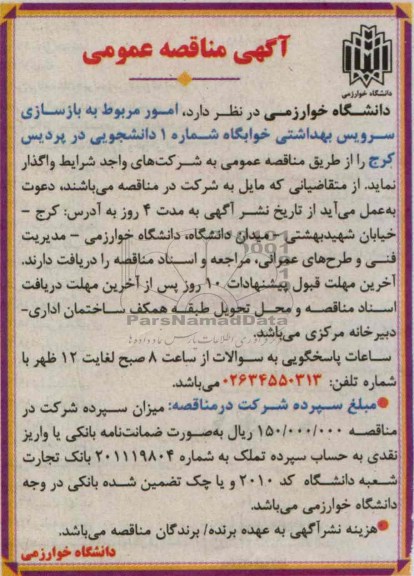 آگهی مناقصه عمومی
دانشگاه خوارزمی
دانشگاه خوارزمی در نظر دارد، امور مربوط به بازسازی
سرویس بهداشتی خوابگاه شماره ۱ دانشجویی در پردیس
کرج را از طریق مناقصه عمومی به شرکت‌های واجد شرایط واگذار
نماید. از متقاضیانی که مایل به شرکت در مناقصه می‌باشند، دعوت
به‌عمل می‌آید از تاریخ نشر آگهی به مدت ۴ روز به آدرس: کرج -
خیابان شهیدبهشتی - میدان دانشگاه، دانشگاه خوارزمی - مدیریت
فنی و طرح‌های عمرانی، مراجعه و اسناد مناقصه را دریافت دارند.
آخرین مهلت قبول پیشنهادات ۱۰ روز پس از آخرین مهلت دریافت
اسناد مناقصه و محل تحویل طبقه همکف ساختمان اداری-
دبیرخانه مرکزی می‌باشد.
ParsNamadData
ساعات پاسخگویی به سوالات از ساعت ۸ صبح لغایت ۱۲ ظهر با
شماره تلفن: ۰۲۶۳۴۵۵۰۳۱۳ می‌باشد.
●مبلغ سپرده شرکت درمناقصه: میزان سپرده شرکت در
مناقصه ۱۵۰/۰۰۰/۰۰۰ ریال به‌صورت ضمانت‌نامه بانکی یا واریز
نقدی به حساب سپرده تملک به شماره ۲۰۱۱۱۹۸۰۴ بانک تجارت
شعبه دانشگاه کد ۲۰۱۰ و یا چک تضمین شده بانکی در وجه
دانشگاه خوارزمی می‌باشد.
●هزینه نشرآگهی به عهده برنده/ برندگان مناقصه می‌باشد.
دانشگاه خوارزمی